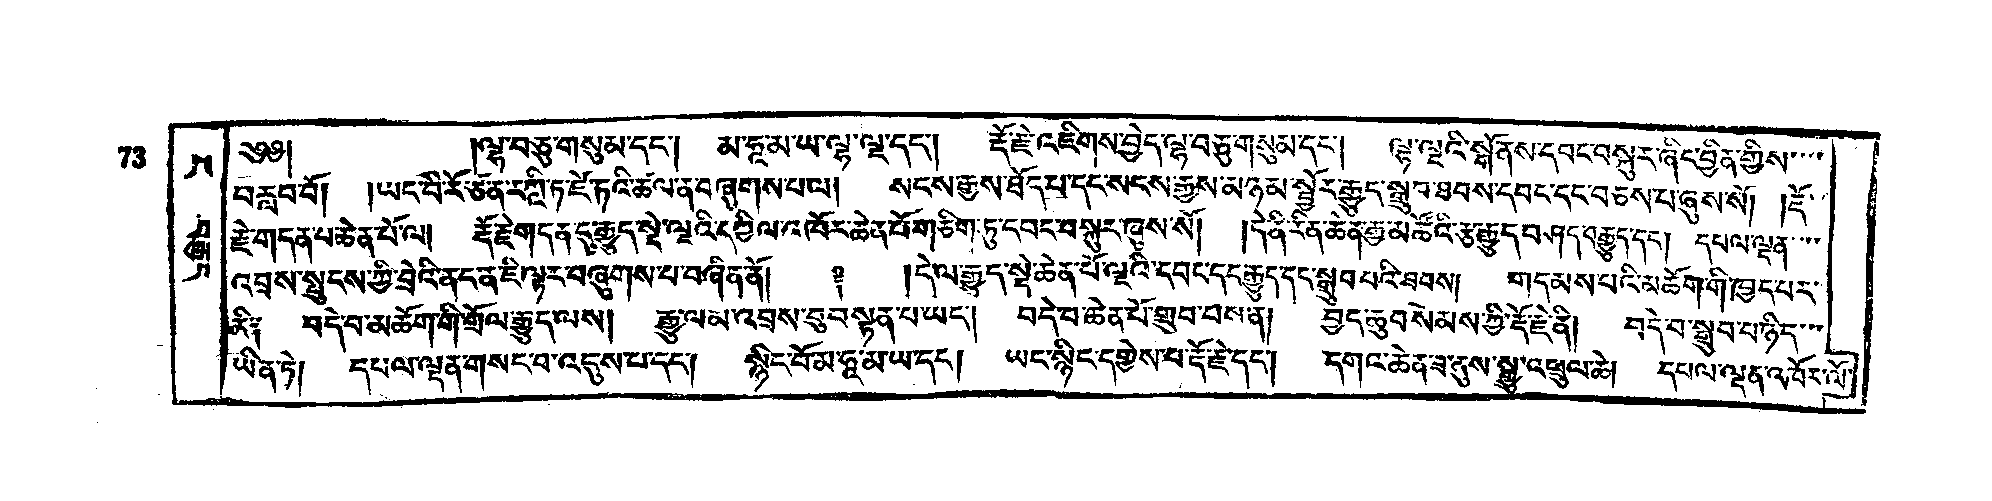 ༄༅། །ལྷ་བཅུ་གསུམ་དང་། མ་ཧཱ་མ་ཡ་ལྷ་ལྔ་དང་། རྡོ་རྗེ་འཇིགས་བྱེད་ལྷ་བཅུ་གསུམ་དང་། ལྷ་ལྔའི་སྒོ་ནས་དབང་བསྐུར་ཞིང་བྱིན་གྱིས་
བརླབ་བོ། །ཡང་བཻ་རོ་ཙ་ན་རཀྵི་ཏ་ཛོ་ཏའི་ཚུལ་ན་བཞུགས་པ་ལ། སངས་རྒྱས་ཐོད་པ་དང་སངས་རྒྱས་མཉམ་སྦྱོར་རྒྱུད་སྒྲུབ་ཐབས་དབང་དང་བཅས་པ་ཞུས་སོ། །རྡོ་
རྗེ་གདན་པ་ཆེན་པོ་ལ། རྡོ་རྗེ་གདན་དུ་རྒྱུད་སྡེ་ལྔའི་དཀྱིལ་འཁོར་ཆེན་པོ་གཅིག་ཏུ་དབང་བསྐུར་ཞུས་སོ། །དེ་ནི་རིན་ཆེན་རྒྱ་མཚོའི་རྩ་རྒྱུད་བཤད་བརྒྱུད་དང་། དཔལ་ལྡན་
འབྲས་སྤུངས་ཀྱི་བྲེའི་ནང་ན་ཇི་ལྟར་བཞུགས་པ་བཞིན་ནོ། ༈ །དེ་ལ་རྒྱུད་སྡེ་ཆེན་པོ་ལྔའི་དབང་དང་རྒྱུད་དང་སྒྲུབ་པའི་ཐབས། གདམས་པའི་མཚོག་གི་ཁྱད་པར་
ནི༔ བདེ་བ་མཆོག་གི་གྲོལ་རྒྱུད་ལས། རྒྱུ་ལམ་འབྲས་བུབ་སྟན་པ་ཡང་། བདེ་བ་ཆེན་པོ་གྲུབ་བས་ན། བྱང་ཆུབ་སེམས་ཀྱི་རྡོ་རྗེ་ནི། བདེ་བ་སྒྲུབ་པ་ཉིད་
ཡིན་ཏེ། དཔལ་ལྡན་གསང་བ་འདུས་པ་དང་། སྙིང་པོ་མ་ཧཱ་མ་ཡ་དང་། ཡང་སྙིང་དགྱེས་པ་རྡོ་རྗེ་དང་། དགའ་ཆེན་ཟ་ནུས་སྒྱུ་འཕྲུལ་ཆེ། དཔལ་ལྡན་འཁོར་ལོ་
73